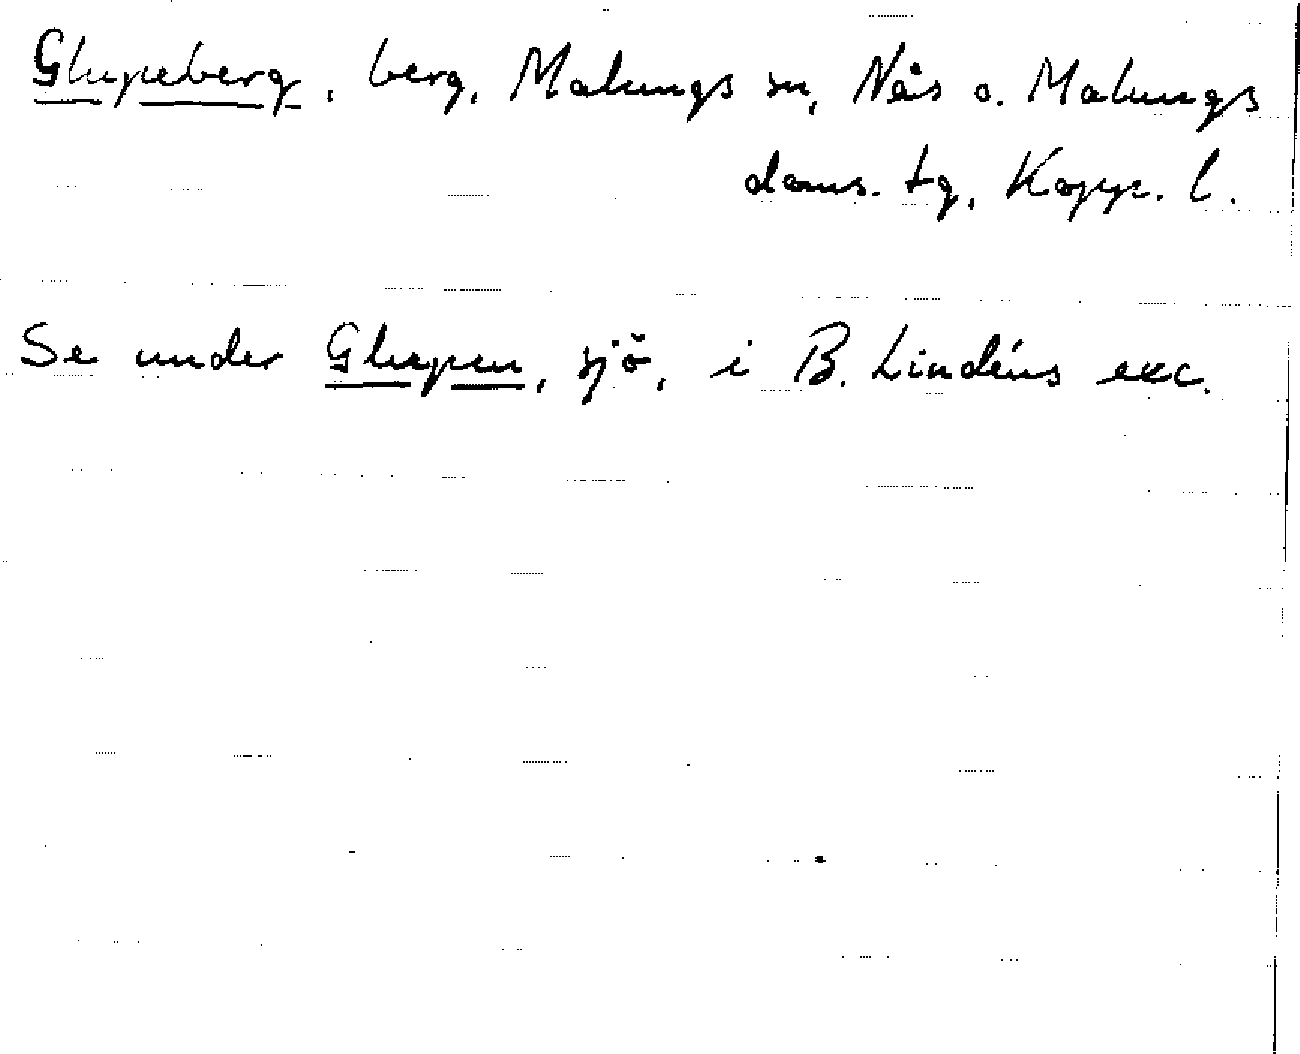 Glupeberg, berg, Malungs sn, Nås o. Malungs
doms. tg, Kopp. l.
Se under Glupen, sjö, i B. Lindéns exc.